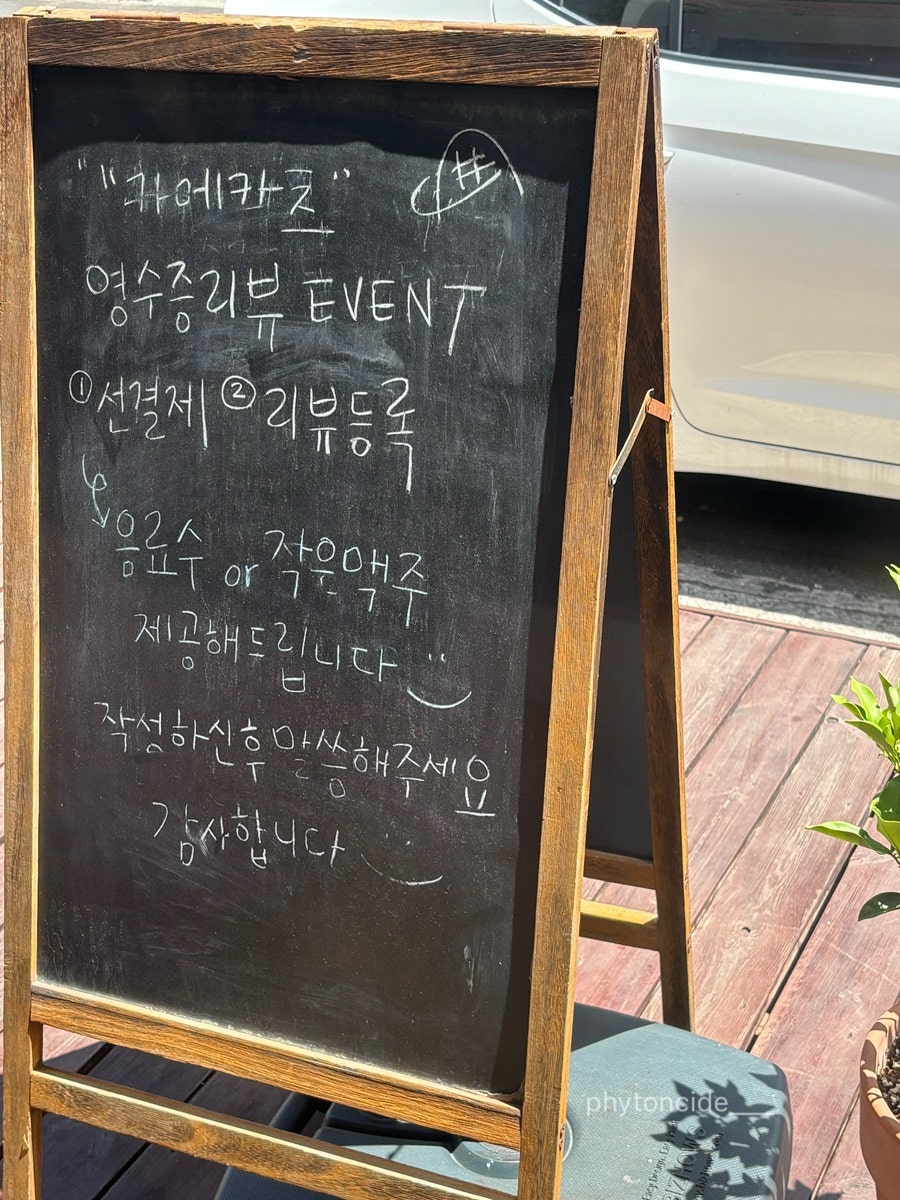 "카에카초" #
영수증리뷰 EVENT
① 선결제 ② 리뷰등록
음료수 or 작은맥주
제공해드립니다
작성하신후 말씀해주세요
감사합니다
phytoncide